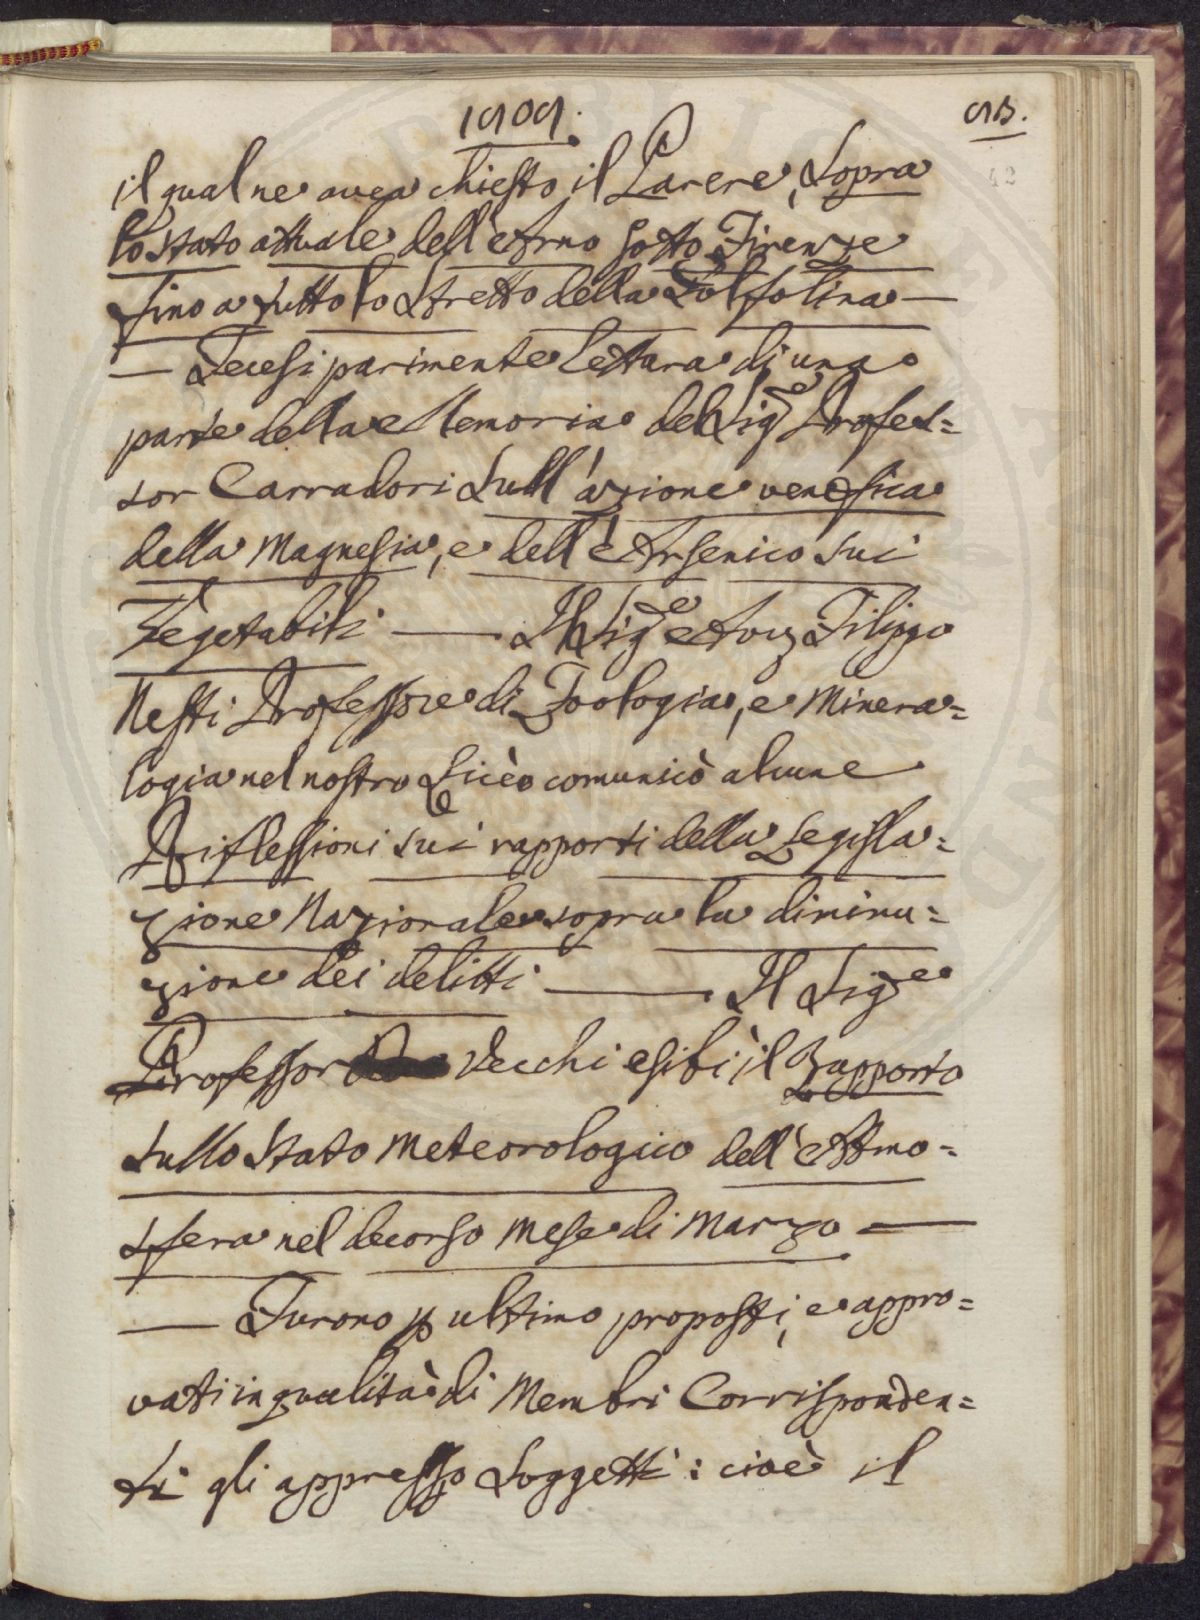 1809.
93.
42
il qual ne avea chiesto il Parere, sopra
lo stato attuale dell'Arno sotto Firenze
fino a tutto lo stretto della Golfolina —
— Fecesi parimente lettura di una
parte della Memoria del Sigre Profes=
sor Carradori sull'azione venefica
della Magnesia, e dell'Arsenico sui
Vegetabili —— Il Sigre Avv Filippo
Nesti Professore di Zoologia, e Minera=
logia nel nostro Licèo comunicò alcune
Riflessioni sui rapporti della Legisla=
zione Nazionale sopra la diminu=
zione dei delitti —— Il Sigre
Professor Vecchi esibì il Rapporto
sullo stato Meteorologico dell'Atmo=
sfera nel decorso Mese di Marzo —
— Furono p ultimo proposti, e appro=
vati in qualità di Membri Corrisponden=
ti gli appresso Soggetti: cioè il